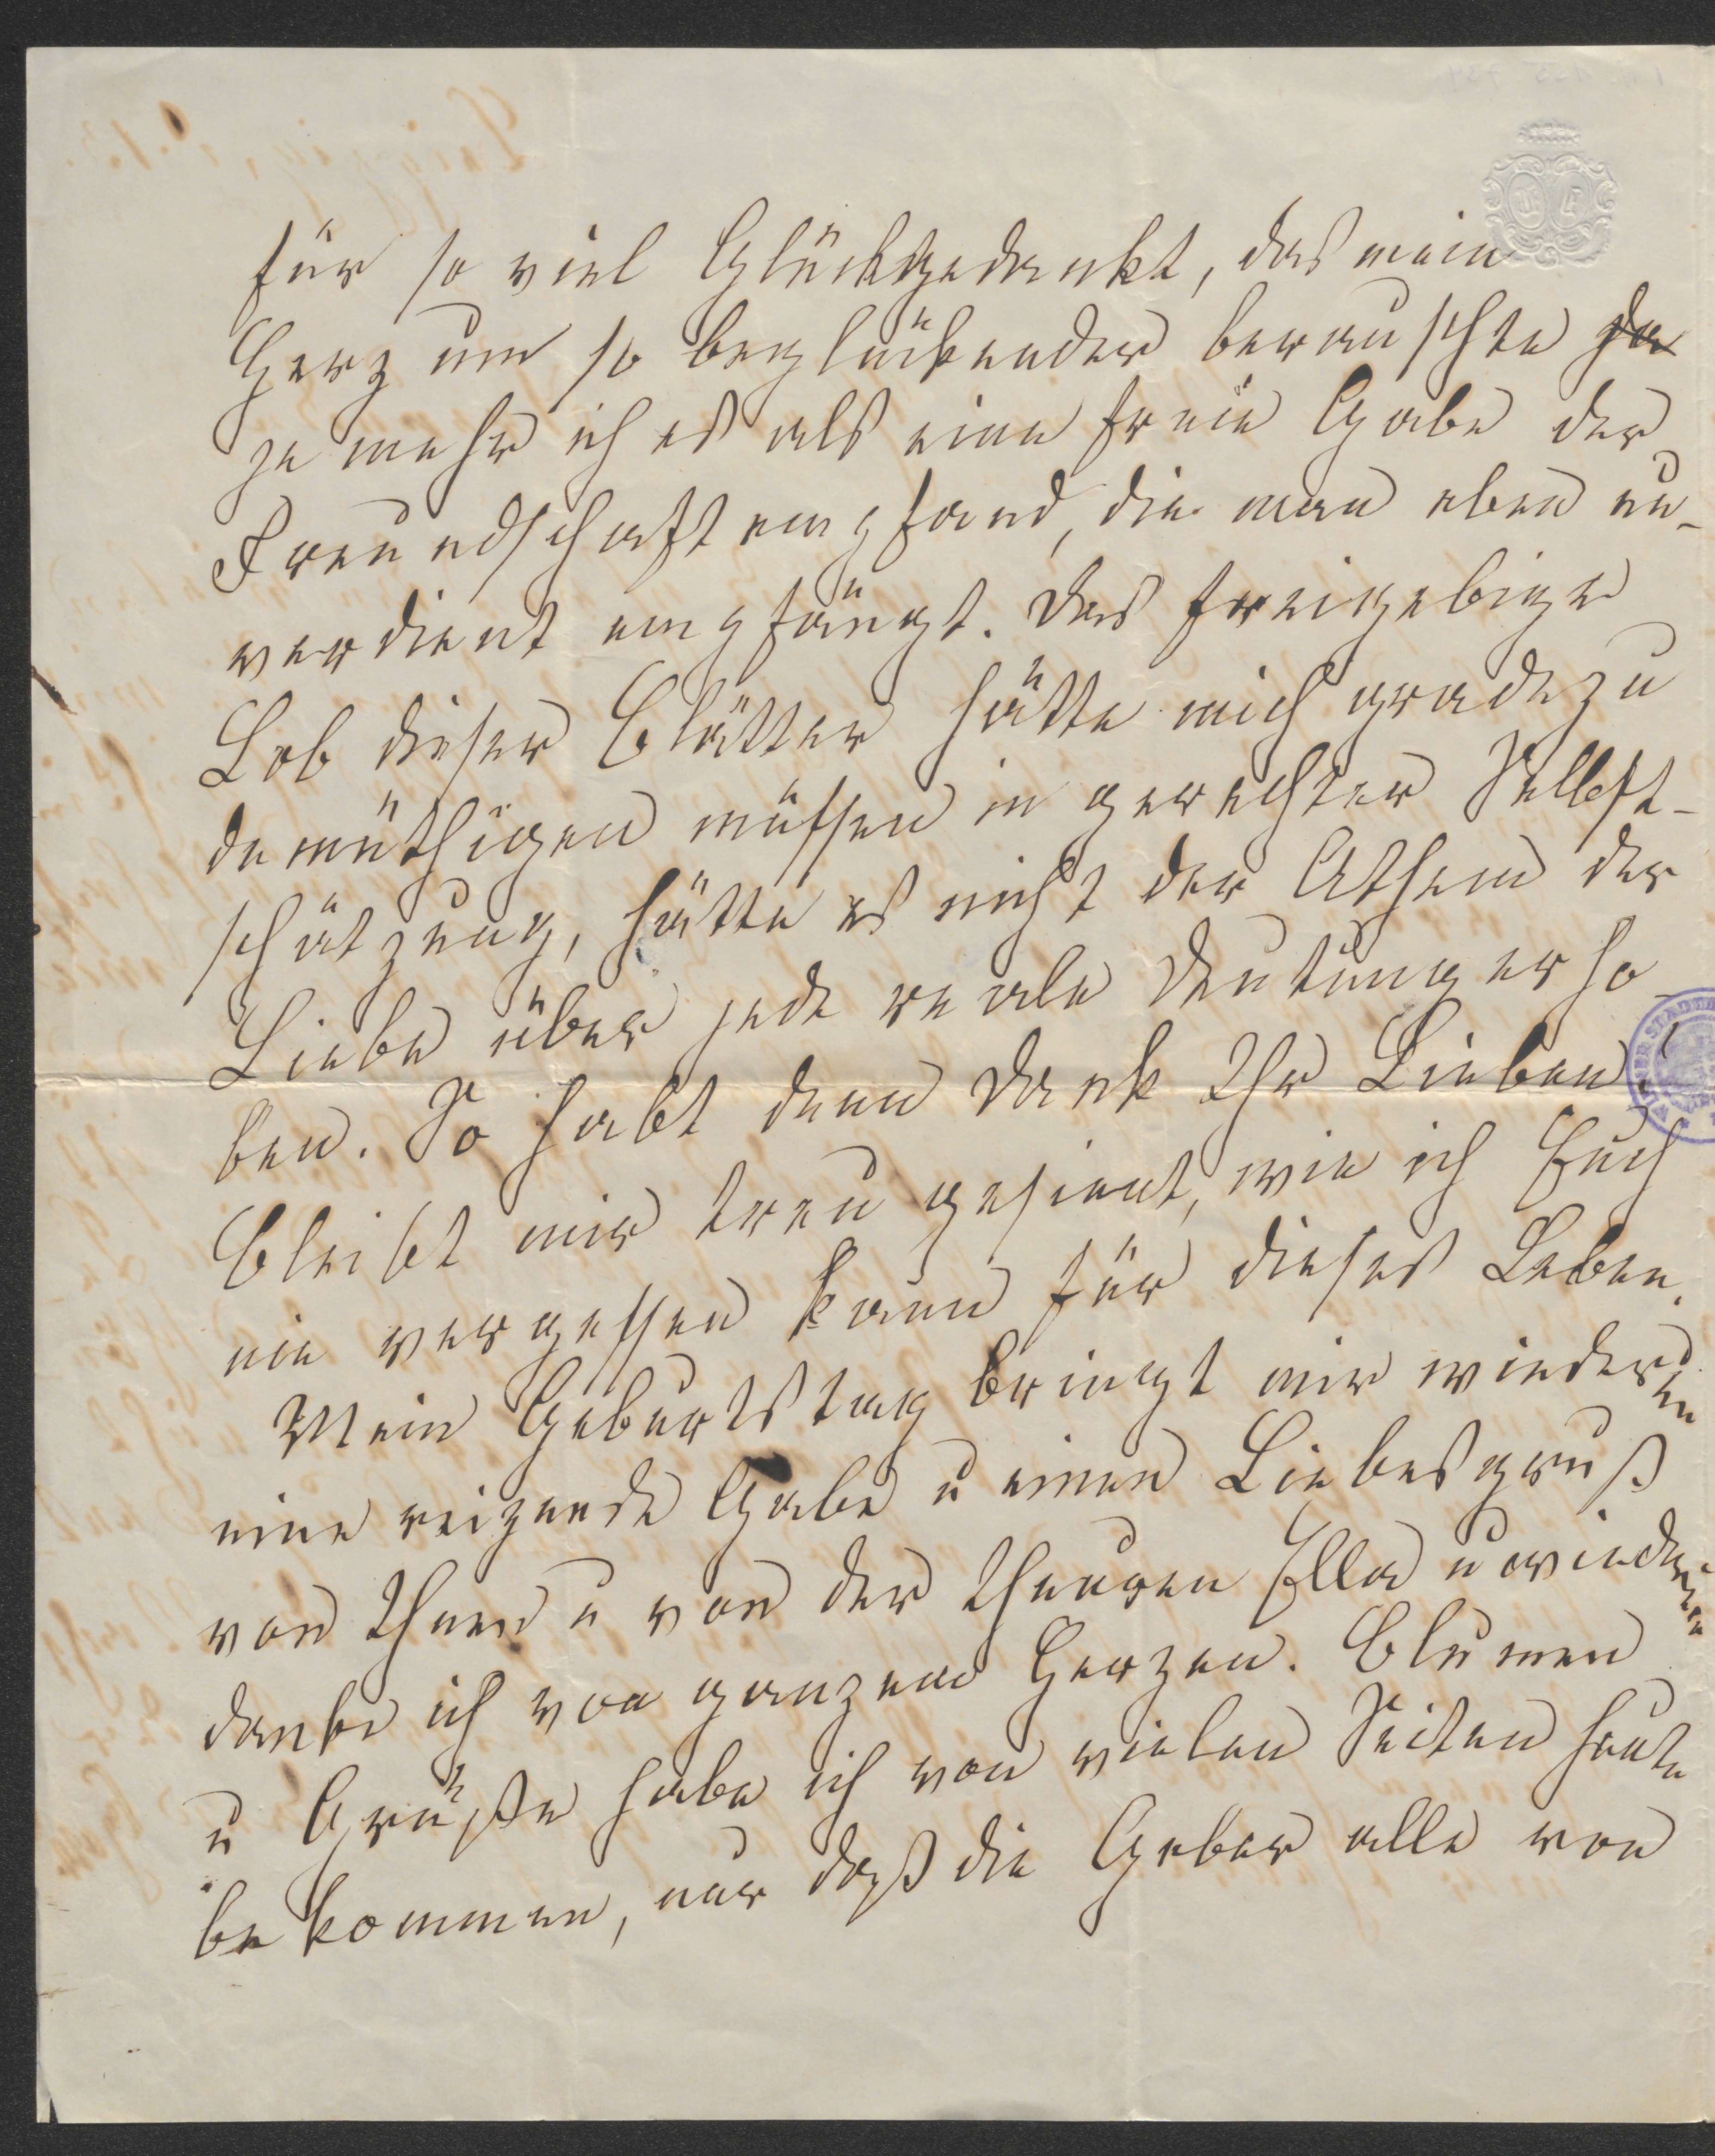 für so viel Glück gedankt, das mein
Herz um so beglückender berauschte
je mehr ich es als eine freie Gabe der
Freundschaft empfand, die man eben un-
verdient empfängt. Das freigebige
Lob dieser Blätter hätte mich gradezu
demüthigen müssen in gerechter Selbst-
schätzung, hätte es nicht der Athem der
Liebe über jede reale Deutung erho-
ben. So habt denn Dank Ihr Lieben!
bleibt mir treu gesinnt, wie ich Euch
nie vergessen kann für dieses Leben.
Mein Geburtstag bringt mir wieder
eine reizende Gabe u einen Liebesgruß
von Ihnen u von der theuren Ella u wieder
danke ich von ganzem Herzen. Blumen
u Grüße habe ich von vielen Seiten heute
bekommen, nur daß die Geber alle von